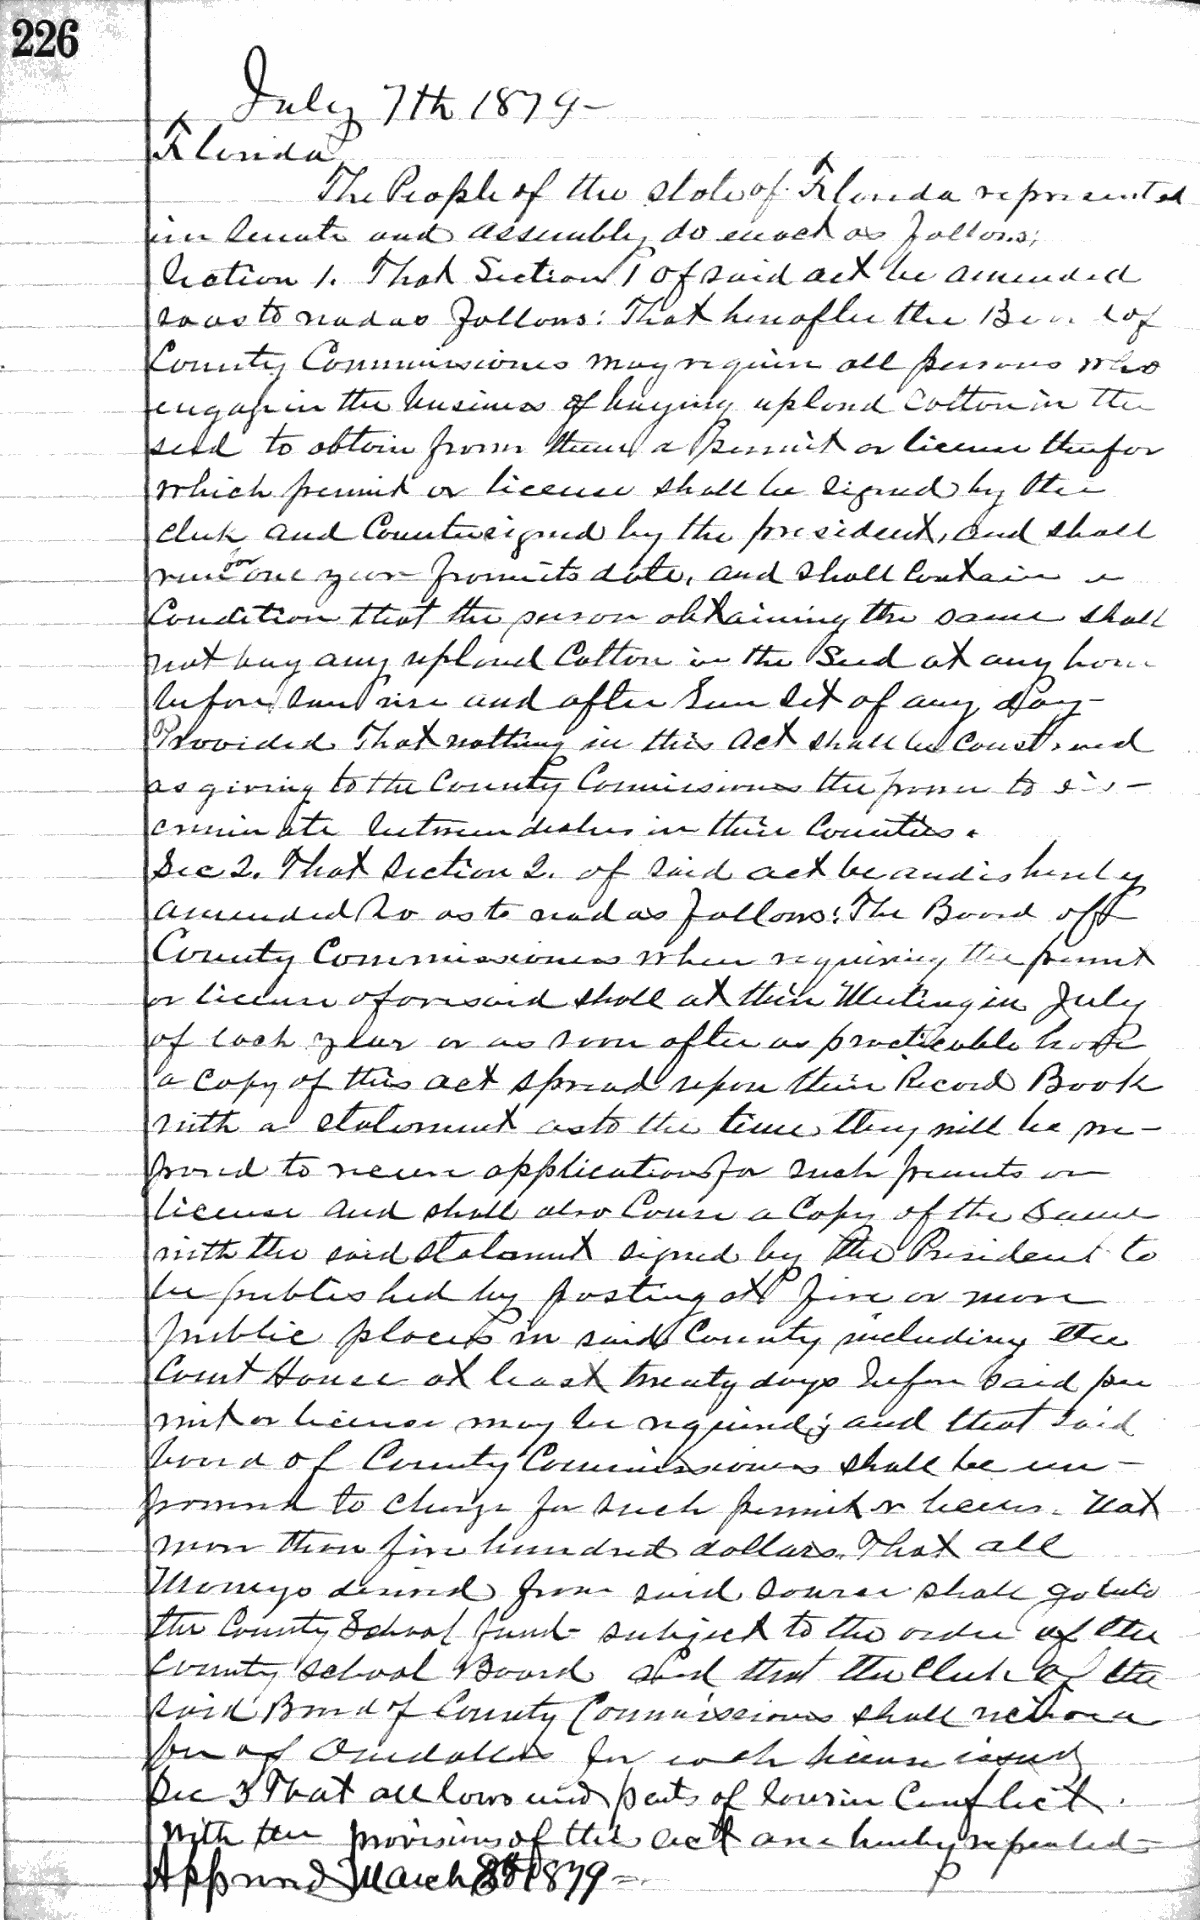 226
July 7th 1879-
Florida
The People of the state of Florida represented
in Senate and assembly do enact as follows;
Section 1. That Section 1 of said act be amended
so as to read as follows: That hereafter the Board of
County Commissioners may require all persons who
engage in the business of buying upland Cotton in the
seed to obtain from them a Permit or license therefor
which permit or license shall be signed by the
clerk and Countersigned by the president, and shall
run for one year from its date, and shall Contain a
Condition that the person obtaining the same shall
not buy any upland Cotton in the Seed at any hour
before sun rise and after Sun Set of any day-
Provided That nothing in this Act shall be Construed
as giving to the County Commissioners the power to dis-
criminate between dealers in their Counties.
Sec 2. That Section 2. of said act be and is hereby
amended So as to read as follows: The Board of
County Commissioners when requiring the permit
or license aforesaid shall at their Meeting in July
of each year or as soon after as practicable have
a Copy of this act spread upon their Record Book
with a statement as to the time they will be pre-
pared to receive application for such permits or
license and shall also Cause a Copy of the Same
with the said statement signed by the President to
be published by posting at five or more
public places in said County including the
Court House at least twenty days before Said per
mit or license may be required; and that Said
board of County Commissioners shall be em-
powered to charge for such permit or license. Not
more than five hundred dollars. That all
Moneys derived from said source shall go into
the County School fund- subject to the order of the
County School Board and that the Clerk of the
said Board of County Commissioners shall receive a
fee of One dollar for each license issued
Sec 3 That all laws and parts of laws in Conflict
With the provisions of this act are hereby repealed-
Approved March 8th 1879-